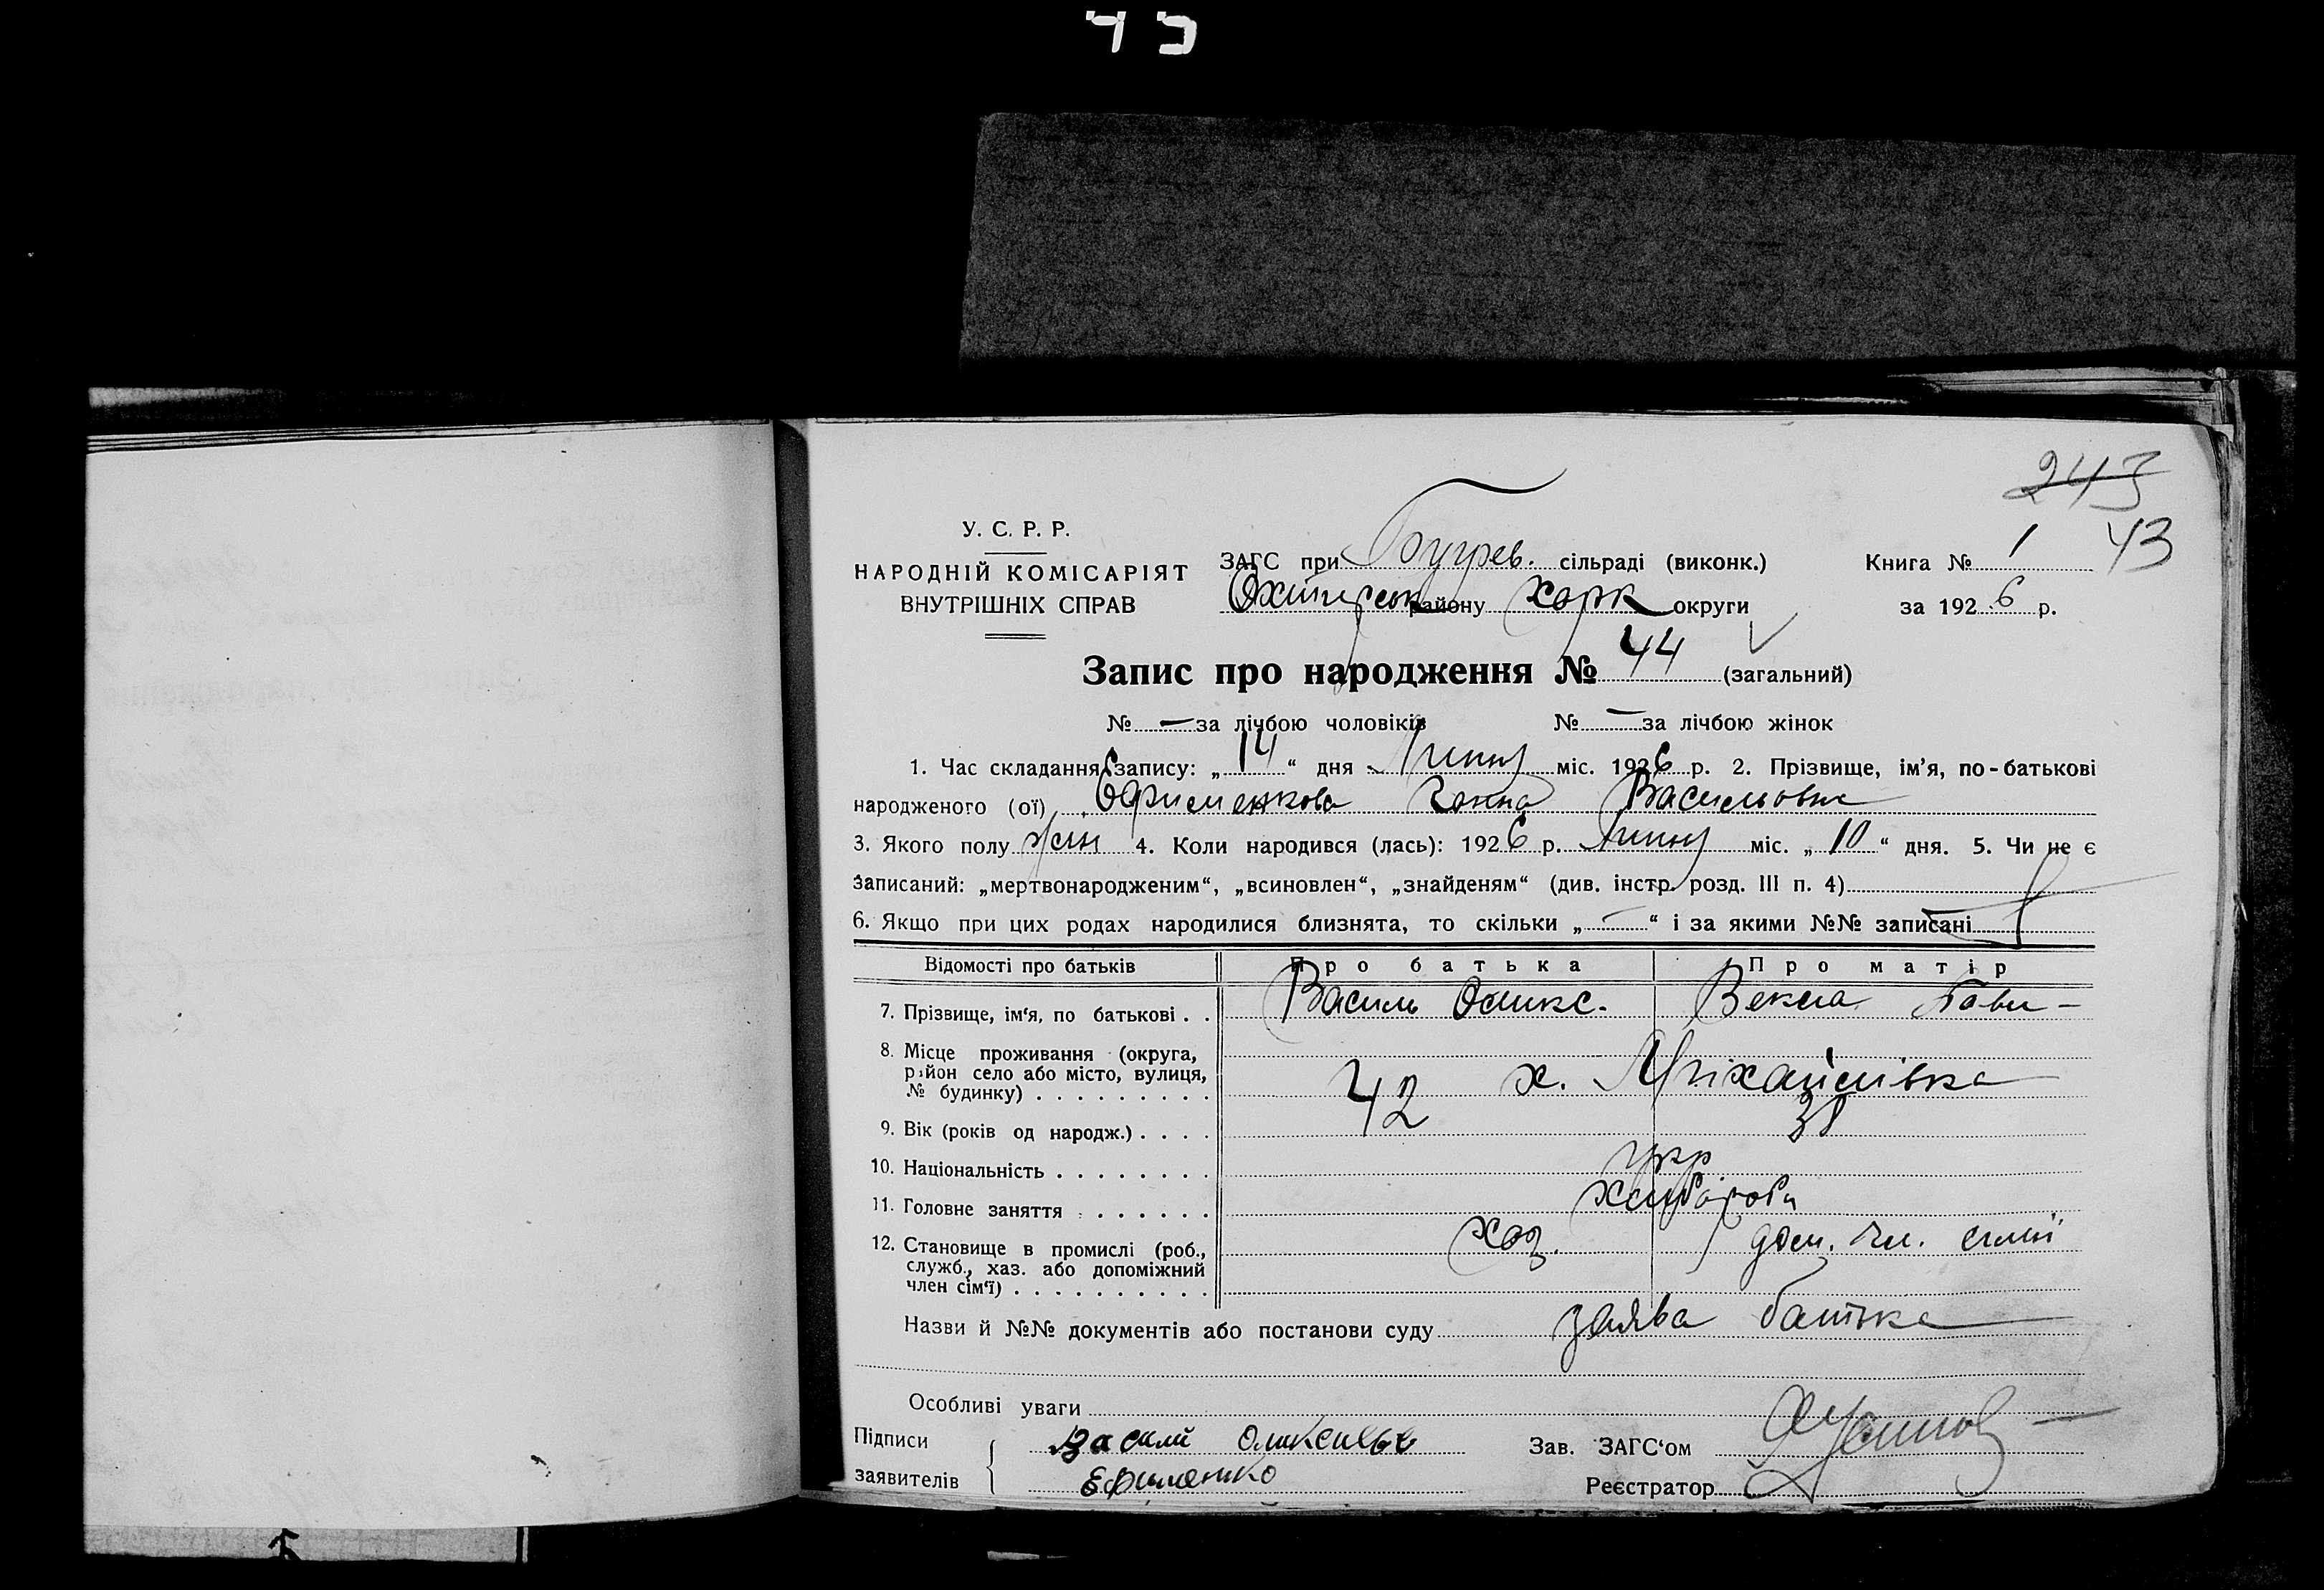 43
243
43
У. С. Р. Р.
НАРОДНІЙ КОМІСАРІЯТ
ВНУТРІШНІХ СПРАВ
ЗАГС при Бугрев. сільраді (виконк.)
Охтирськ району Харк округи
Книга № 1
за 1926 р.
Запис про народження № 44 (загальний)
№ — за лічбою чоловіків № — за лічбою жінок
1. Час складання запису: „14“ дня Липня міс. 1926 р. 2. Прізвище, ім’я, по-батькові
народженого (ої) Юфименкова Ганна Васильовна
3. Якого полу жін 4. Коли народився (лась): 1926 р. Липня міс. „10“ дня. 5. Чи не є
записаний: „мертвонародженим“, „всиновлен“, „знайденям“ (див. інстр. розд. III п. 4)
6. Якщо при цих родах народилися близнята, то скільки „—“ і за якими №№ записані
Відомості про батьків Про батька Про матір
7. Прізвище, ім‘я, по батькові . . Василь Оликс. Векла Павл-
8. Місце проживання (округа,
район село або місто, вулиця,
№ будинку) . . . . . . . . . х. Михайлівка
9. Вік (років од народж.) . . . . 42 38
10. Національність . . . . . . . . укр
11. Головне заняття . . . . . . . хліборобн
12. Становище в промислі (роб.,
служб., хаз. або допоміжний
член сім‘ї) . . . . . . . . . . хоз. дом. чл. сімї
Назви й №№ документів або постанови суду заява батька
Особливі уваги
Підписи
заявителів
Васили Оликсиевь
Ефименко
Зав. ЗАГС‘ом
Реєстратор